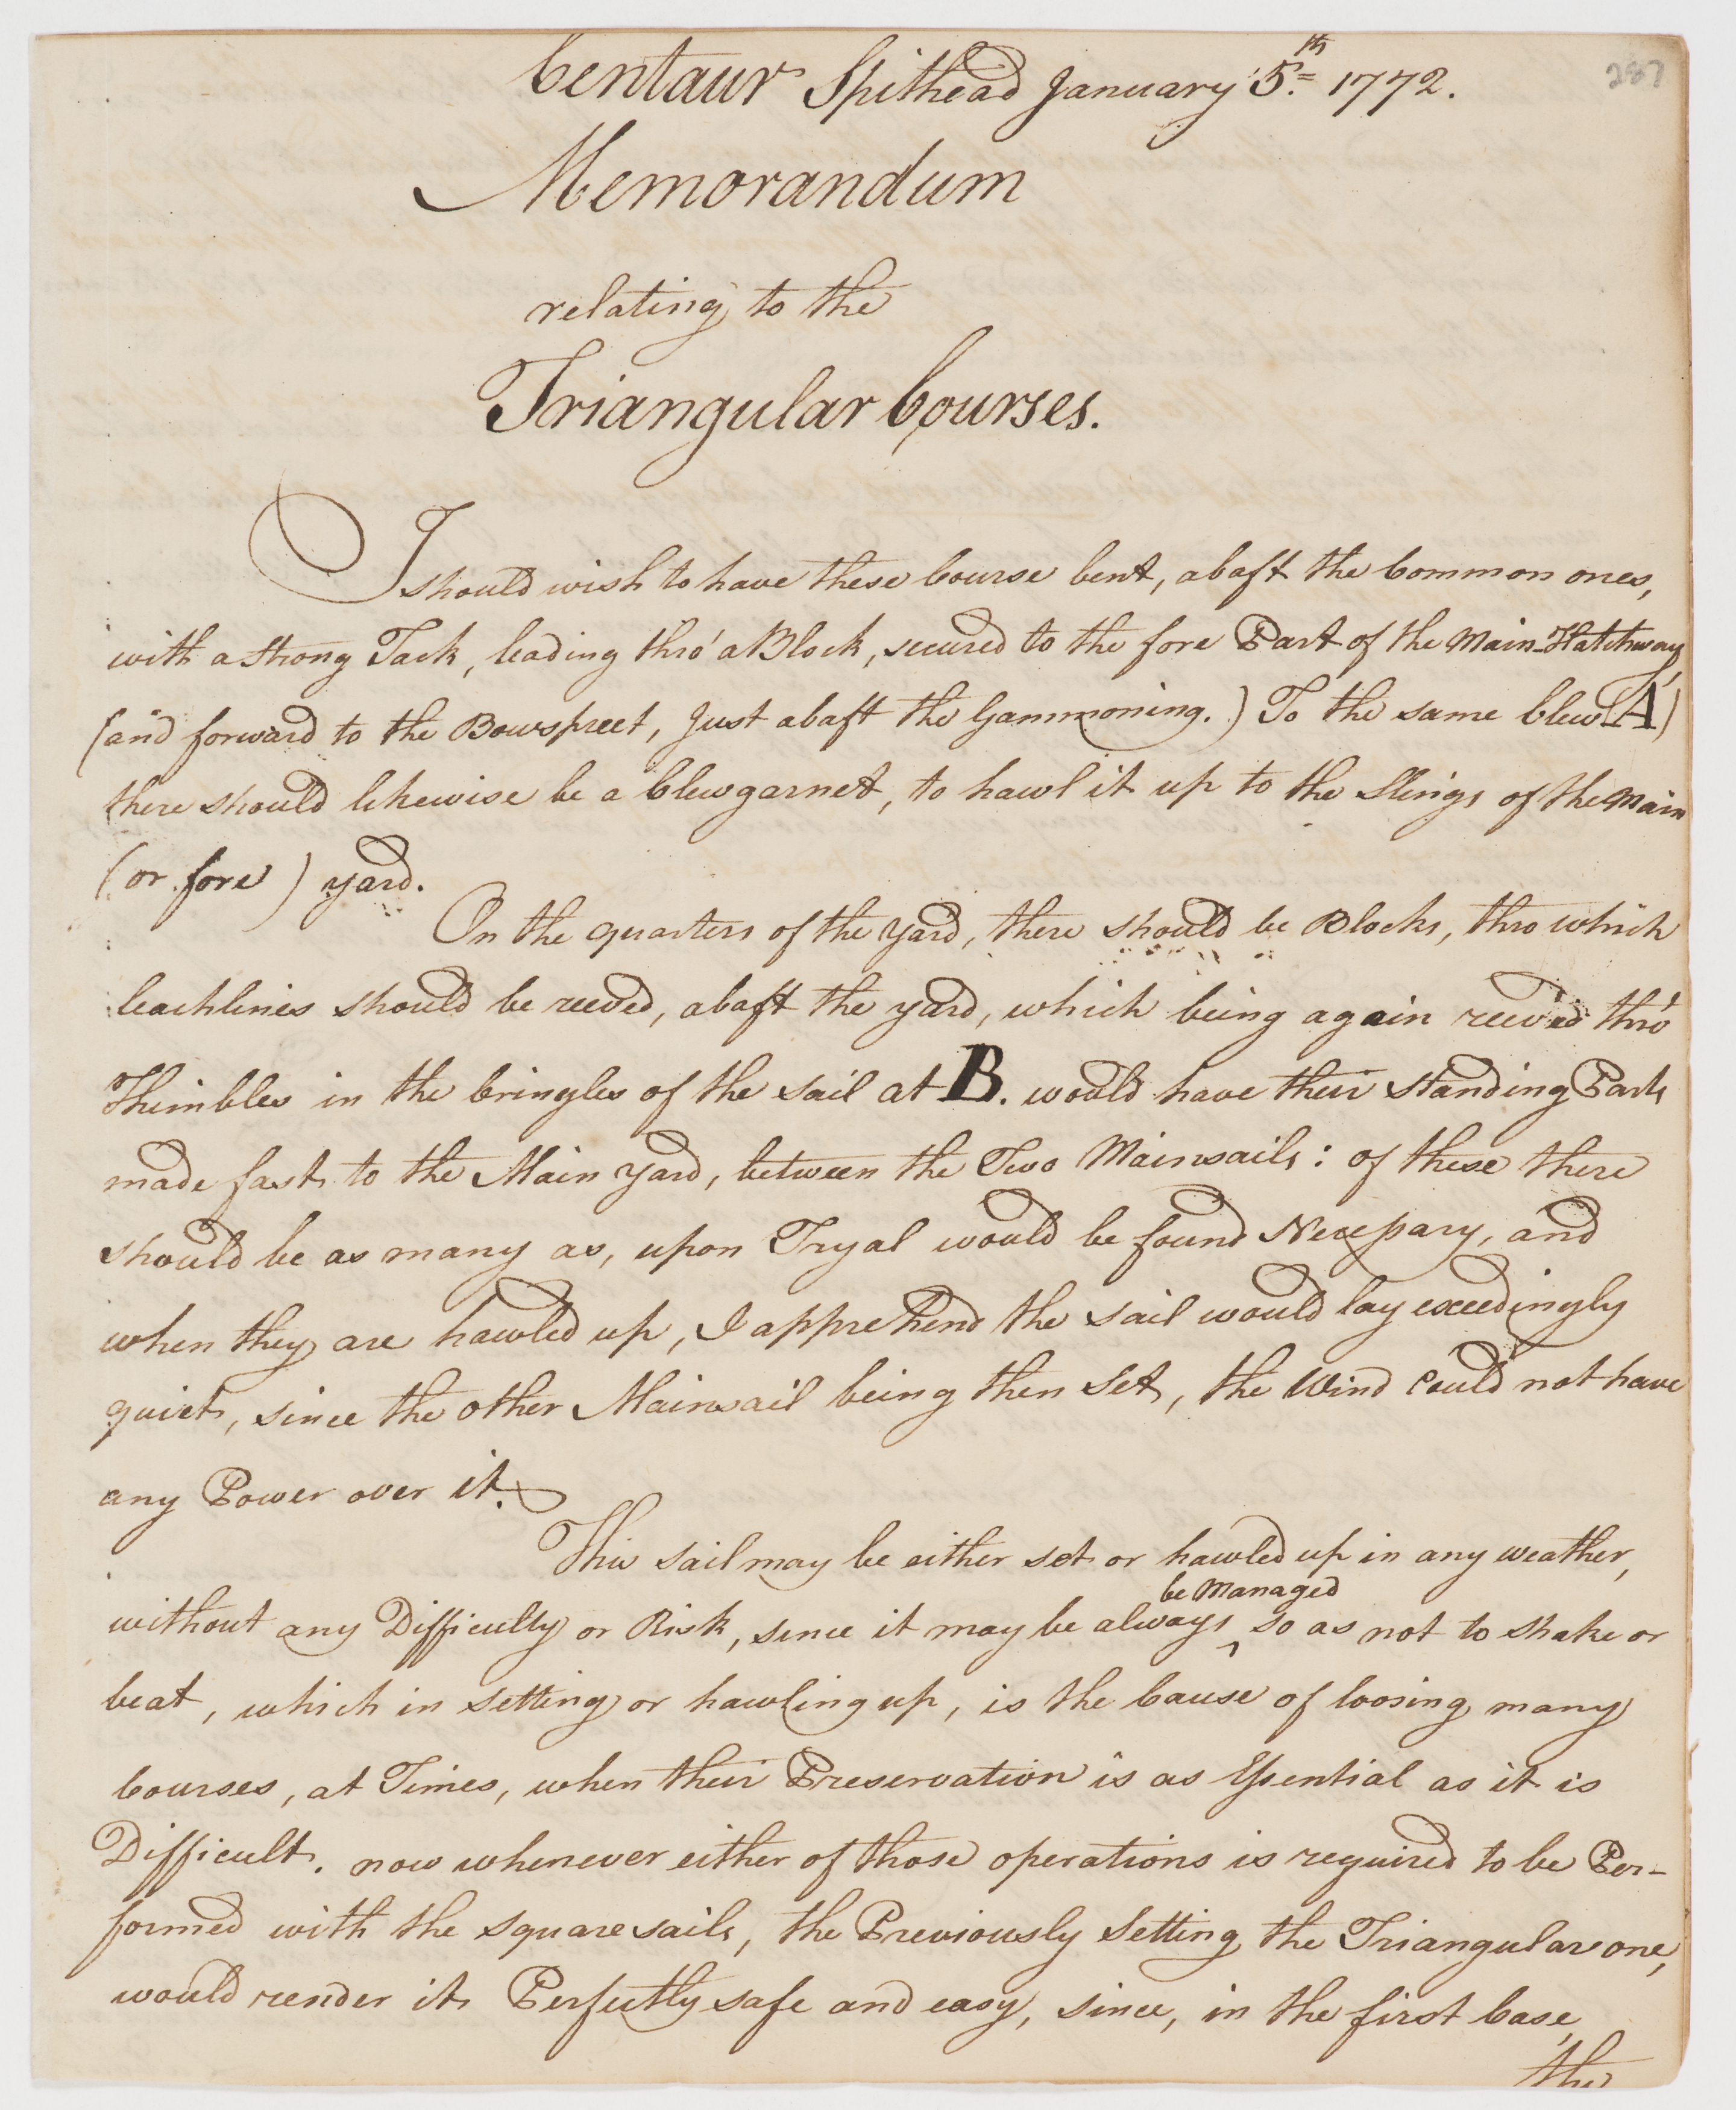 287
Centaur Spithead January 5th 1772.
Memorandum
relating to the
Triangular Courses.
I should wish to have these Course bent, abaft the Common ones,
with a strong Tack, leading thro' a Block, secured to the fore Part of the Main-Hatchway,
(and forward to the Bowspreet, Just abaft the Gammoning.) To the same Clew (A)
there should likewise be a Clewgarnet, to hawl it up to the Slings of the Main
(or fore) yard.
On the quarters of the Yard, there should be Blocks, thro which
leachlines should be reeved, abaft the yard, which being again reeved thro'
Thimbles in the Cringles of the sail at B. would have their standing Parts
made fast to the Main Yard, between the Two Mainsails: of these there
should be as many as, upon Tryal would be found Necessary, and
when they are hawled up, I apprehend the sail would lay exceedingly
quiet, since the other Mainsail being then set, the Wind could not have
any Power over it.
This sail may be either set or hawled up in any weather,
be Managed
without any Difficulty or Risk, since it may be always ^ so as not to shake or
beat, which in setting or hawling up, is the Cause of loosing many
Courses, at Times, when their Preservation is as Essential as it is
Difficult. now whenever either of those operations is required to be Per-
formed with the square sails, the Previously Setting the Triangular one,
would render it Perfectly safe and easy, since, in the first Case,
the